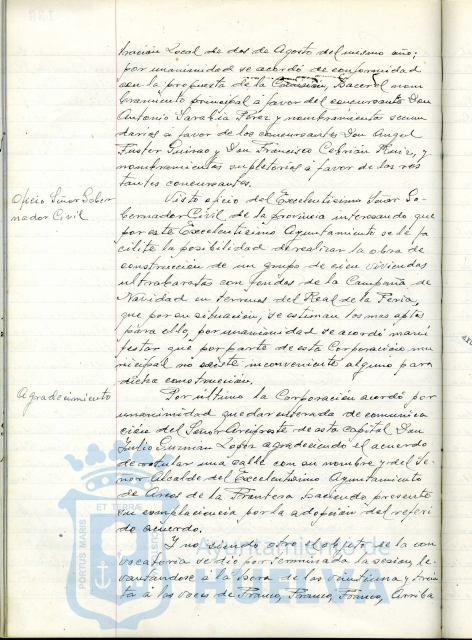 tración Local de dos de Agosto del mismo año;
por unanimidad se acordó de conformidad
con la propuesta de la Comisión, hacer el nom
bramiento principal á favor del concursante Don
Antonio Sarabia Pérez y nombramientos secun
darios á favor de los concursantes Don Angel
Fuster Guirao y Don Francisco Cebrián Ruiz, y
nombramientos supletorios á favor de los res
tantes concursantes.
Oficio Señor Gober
nador Civil
Visto oficio del Excelentísimo Señor Go-
bernador Civil de la provincia interesando que
por este Excelentísimo Ayuntamiento se le fa
cilite la posibilidad de realizar la obra de
construcción de un grupo de cien viviendas
ultrabaratas con fondos de la Campaña de
Navidad en terrenos del Real de la Feria,
que por su situación, se estiman los mas aptos
para ello, por unanimidad se acordó mani
festar que por parte de esta Corporación mu
nicipal no existe inconveniente alguno para
dicha construcción.
Agradecimiento
Por último la Corporación acordó por
unanimidad quedar enterada de comunica
ción del Señor Arcipreste de esta capital Don
Julio Guzman Lopez agradeciendo el acuerdo
de rotular una calle con su nombre y del Se-
ñor Alcalde del Excelentísimo Ayuntamiento
de Arcos de la Frontera haciendo presente
su complacencia por la adopción del referi
do acuerdo.
Y no siendo otro el objeto de la con
vocatoria se dio por terminada la sesion, le
vantandose á la hora de las veintiuna, y trein
ta á las voces de Franco, Franco, Franco, Arriba
ET TERRA
PORTUS MARIS
Ayuntamiento de
HUELVA